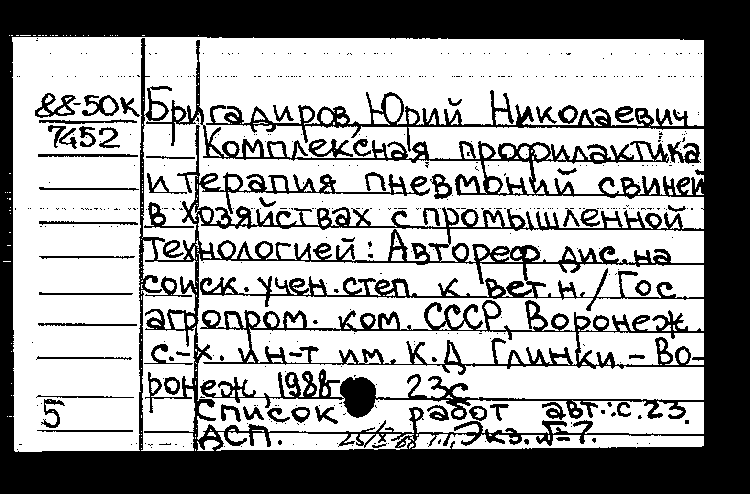 88-50К Бригадиров, Юрий Николаевич
7452 Комплексная профилактика
и терапия пневмоний свиней
в хозяйствах с промышленной
технологией: Автореф. дис. на
соиск. учен. степ. к. вет. н. / Гос
агропром. ком. СССР, Воронеж.
с.-х. ин-т им. К.Д. Глинки. - Во-
ронеж, 1988 23с.
5 Список работ авт.: с. 23.
ДСП. Экз. №=7.